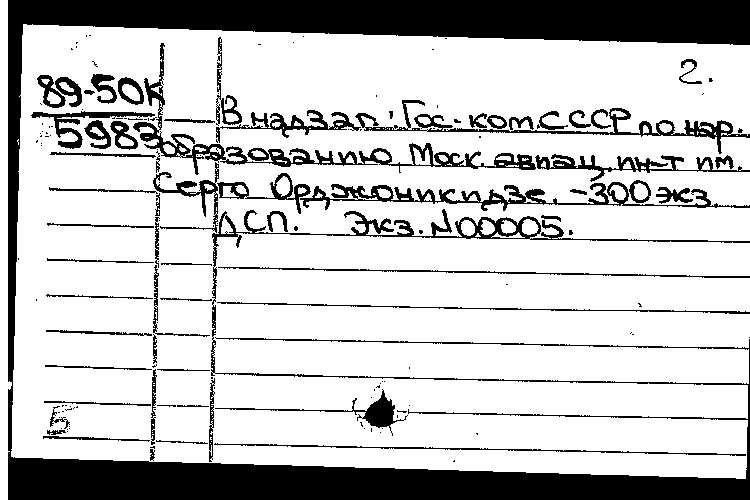 2.
89-50К
5983
В надзаг.: Гос. ком. СССР по нар.
образованию, Моск. авиац. ин-т им.
Серго Орджоникидзе. - 300 экз.
ДСП. Экз. N00005.
5